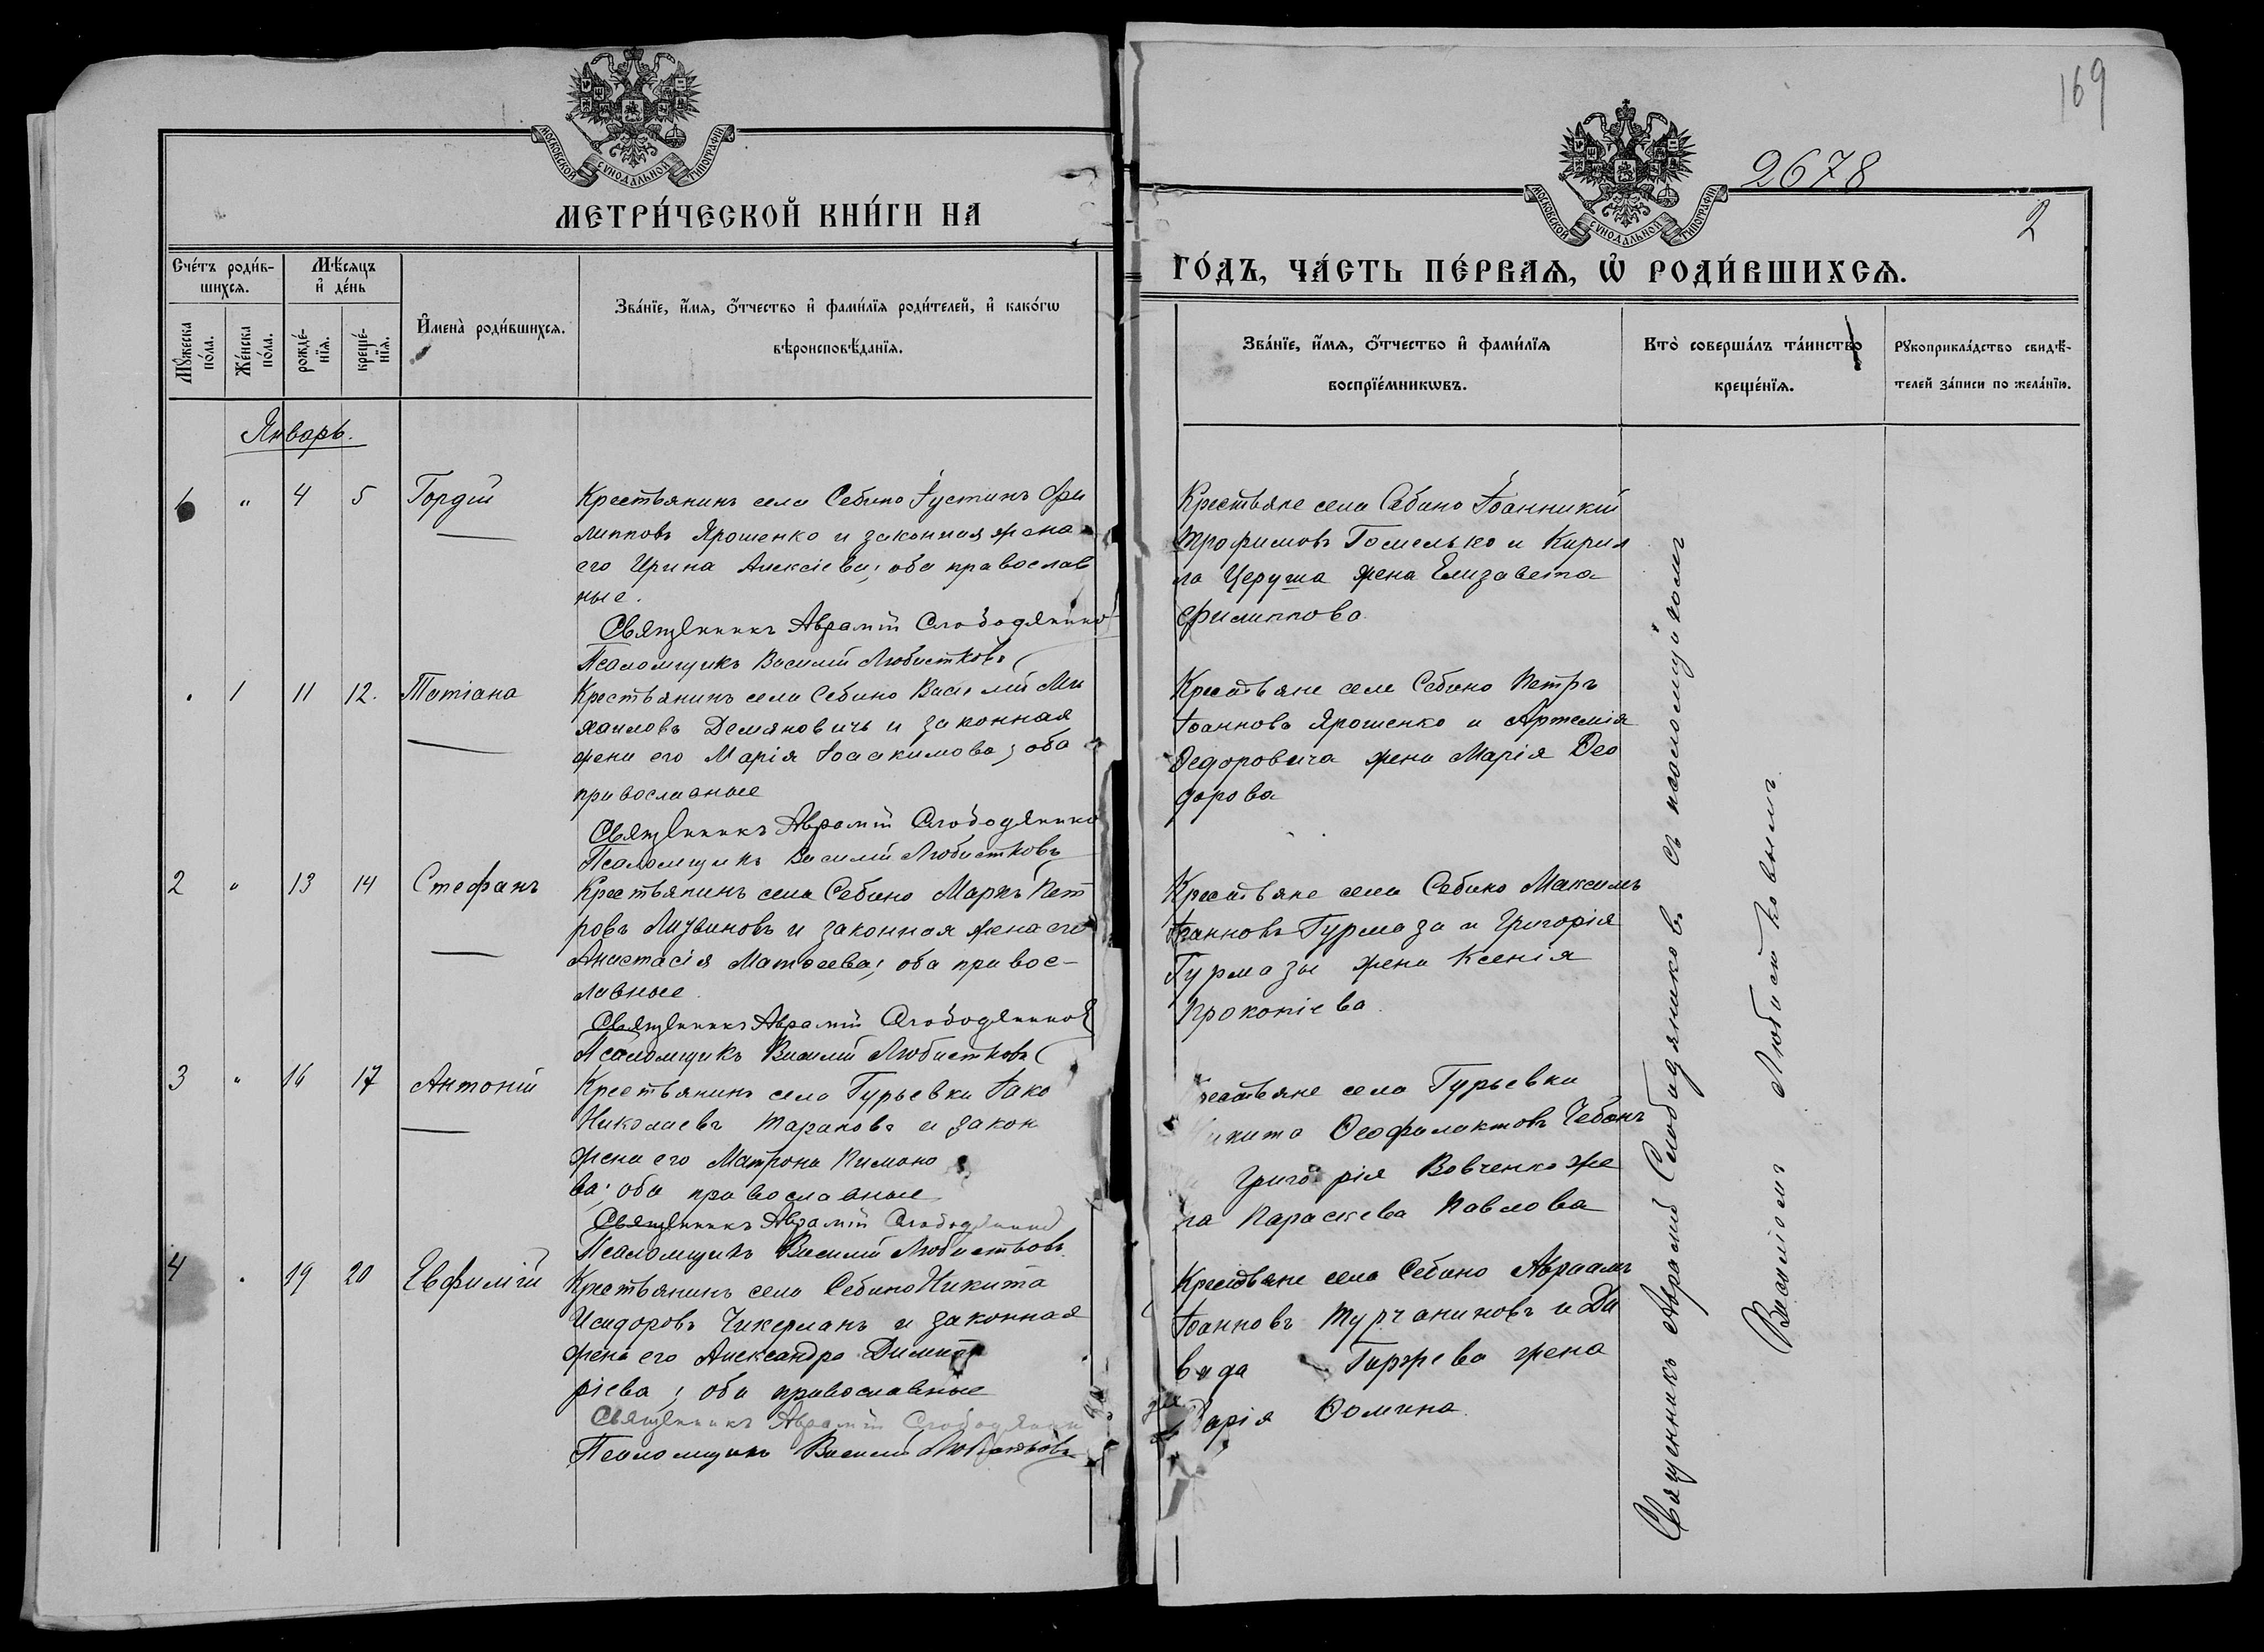 МОСКОВСКОЙ СѴНОДАЛЬНОЙ ТИПОГРАФІИ
МЕТРИ́ЧЕСКОЙ КНИ́ГИ НА
Сче́тъ роди́в-
шихсѧ.
Мѣ́сѧцъ
и҆ де́нь
И҆мена̀ роди́вшихсѧ.
Зва́нїе, и҆́мѧ, ѻ҆́тчество и҆ фами́лїѧ роди́телей, и҆ како́гѡ
вѣроисповѣ́данїѧ.
Мꙋ́жеска
по́ла.
Же́нска
по́ла.
рожде́-
нїѧ.
креще́-
нїѧ.
Январь.
1 " 4 5 Гордій
Крестьянинъ села Себино Іустинъ Фи
липповъ Ярошенко и законная жена
его Ирина Алексіева; оба православ
ные.
Священникъ Аврамій Слободянико
Псаломщикъ Василій Любистковъ
" 1 11 12. Татіана
Крестьянинъ села Себино Василій Ми
хаиловъ Демяновичъ и законная
жена его Марія Іоакимова; оба
православные
Священникъ Аврамій Слободянико
Псаломщикъ Василій Любистковъ
2 " 13 14 Стефанъ
Крестьянинъ села Себино Маркъ Пет
ровъ Литвиновъ и законная жена его
Анастасія Матѳеева; оба правос-
лавные.
Священникъ Аврамій Слободяников
Псаломщикъ Василій Любистковъ
3 " 16 17 Антоній
Крестьянинъ села Гурьевки Іако
Николаевъ Тарановъ и закон
жена его Матрона Пимоно
ва; оба православные
Священникъ Аврамій Слободянико
Псаломщикъ Василій Любистковъ
4 " 19 20 Евфимій
Крестьянинъ села Себино Никита
Исидоровъ Чикерманъ и законная
жена его Александра Димит
ріева; оба православные
Священникъ Аврамій Слободяник
Псаломщикъ Василій Любистковъ
169
2678
2
МОСКОВСКОЙ СѴНОДАЛЬНОЙ ТИПОГРАФІИ
ГО́ДЪ, ЧА́СТЬ ПЕ́РВАѦ, Ѡ҆ РОДИ́ВШИХСѦ.
Зва́нїе, и҆́мѧ, ѻ҆́тчество и҆ фами́лїѧ
воспрїе́мникѡвъ.
Кто̀ соверша́лъ та́инство
креще́нїѧ.
Рꙋкоприкла́дство свидѣ́-
телей за́писи по жела́нїю.
Крестьяне села Себино Іоанникій
Трофимовъ Гомелько и Кирил
ла Церуша жена Елизавета
Филиппова.
Крестьяне села Себино Петръ
Іоанновъ Ярошенко и Артемія
Ѳедоровича жена Марія Ѳео
дорова
Крестьяне села Себино Максимъ
Іоанновъ Гурмаза и Григорія
Гурмазы жена Ксенія
Прокопіева.
рестьяне села Гурьевки
икита Ѳеофилактовъ Чебанъ
Григорія Вовченко же
на Параскева Павлова
Крестьяне села Себино Авраамъ
Іоанновъ Турчаниновъ и Да
вида жена
Дарія Ѳомина.
Священникъ Аврамій Слободяниковъ съ псаломщикомъ
Василіемъ Любистковымъ.